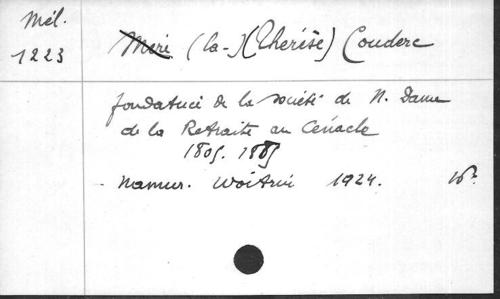 Mél.
1223
Mère (la-) (Thérèse) Couderc
fondatrice de la société de N. Dame
de la Retraite au Cénacle
1805. 1885
Namur. Woitrin 1924. 16°